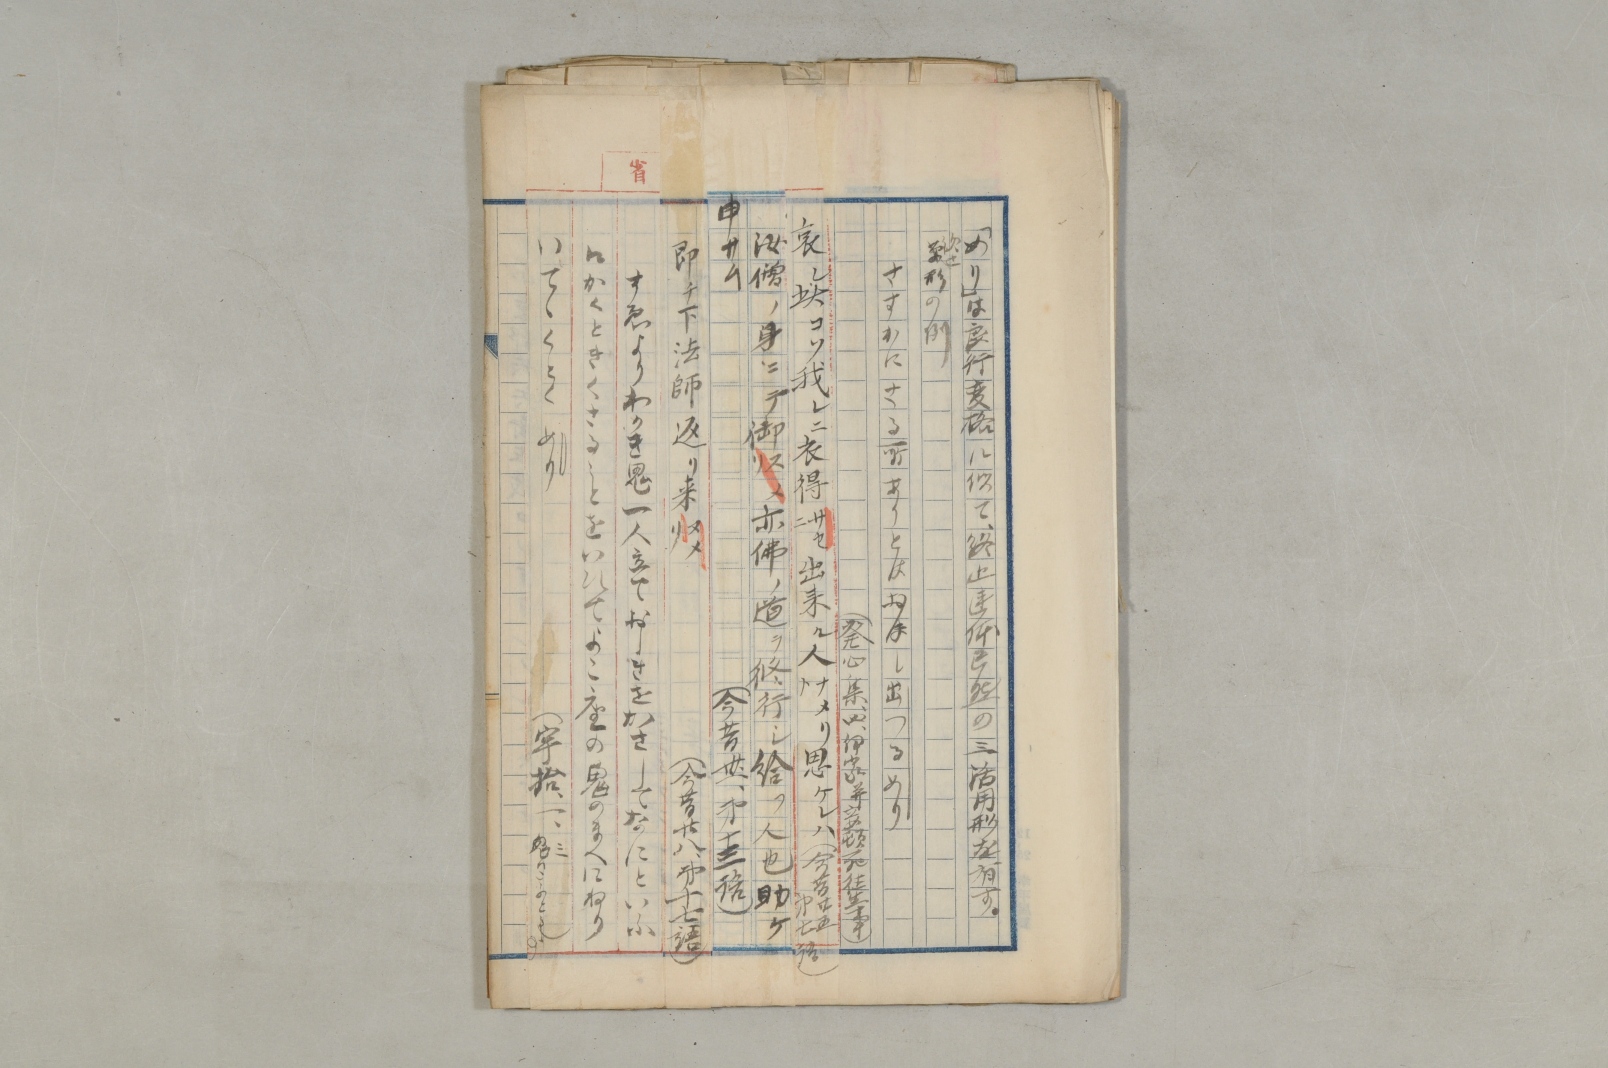 「めり」は良行変格に似て、終止連体已然の三活用形を有す。
終止形の例
さすかにさる所ありとはおほし出つるめり
(発心集、四、伊家并妾頓死往生事)
哀レ此コソ我レニ衣得サセニ出来ル人ナメリ思ケレハ(今昔廿五第七語)
汝僧ノ身ニテ御スメリ亦佛ノ道ヲ修行シ給フ人也助ケ
申サム
(今昔廿、第十三語)
即チ下法師返リ来ヌメリ
(今昔廿八、第十七語)
すゑよりわかき鬼一人立ておしきをかさしてなにといふ
にかくときくさることをいひてよこ座の鬼のまへにねり
いてゝくとくめり
(宇拾、一、三
省